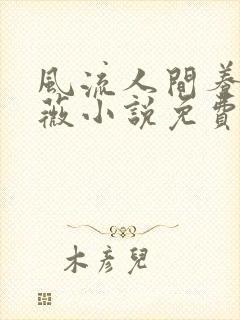 風流人間養
薇小說免費
木彥兒